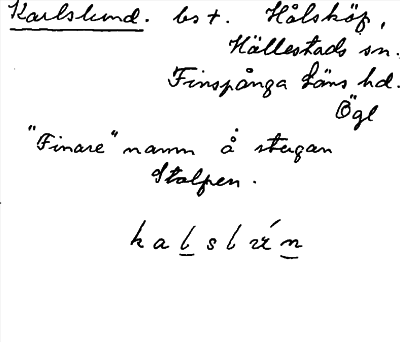 Karlslund. bst. Hålsköp,
Hällestads sn.
Finspånga läns hd.
Ögl
"Finare" namn å stugan
Stolpen.